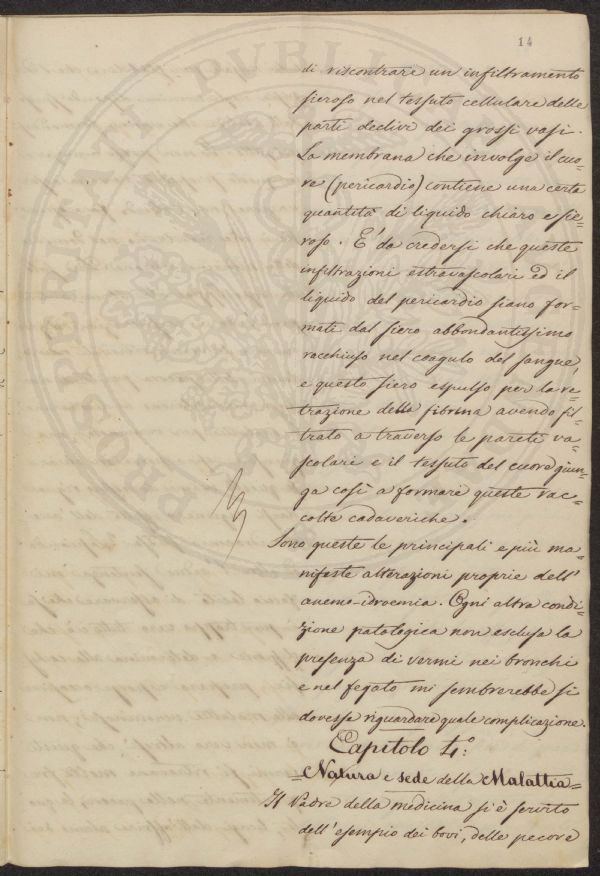 14
di riscontrare un infiltramento
sieroso nel tessuto cellulare delle
parti declivi dei grossi vasi.
La membrana che involge il cuo=
re (pericardio) contiene una certa
quantità di liquido chiaro e sie=
roso. E' da credersi che queste
infiltrazioni estravascolari ed il
liquido del pericardio siano for=
mati dal siero abbondantissimo
racchiuso nel coagulo del sangue,
e questo siero espulso per la re=
trazione della fibrina avendo fil=
trato a traverso le pareti va=
scolari e il tessuto del cuore giun=
ga così a formare queste rac=
colte cadaveriche.
Sono queste le principali e più ma=
nifeste alterazioni proprie dell'
anemo-idroemia. Ogni altra condi=
zione patologica non esclusa la
presenza di vermi nei bronchi
e nel fegato mi sembrerebbe si
dovesse riguardare quale complicazione.
Capitolo 4°:
=Natura e sede della Malattia=
Il Padre della medicina si è servito
dell'esempio dei bovi, delle pecore
PROSPERITATI PVBLICAE